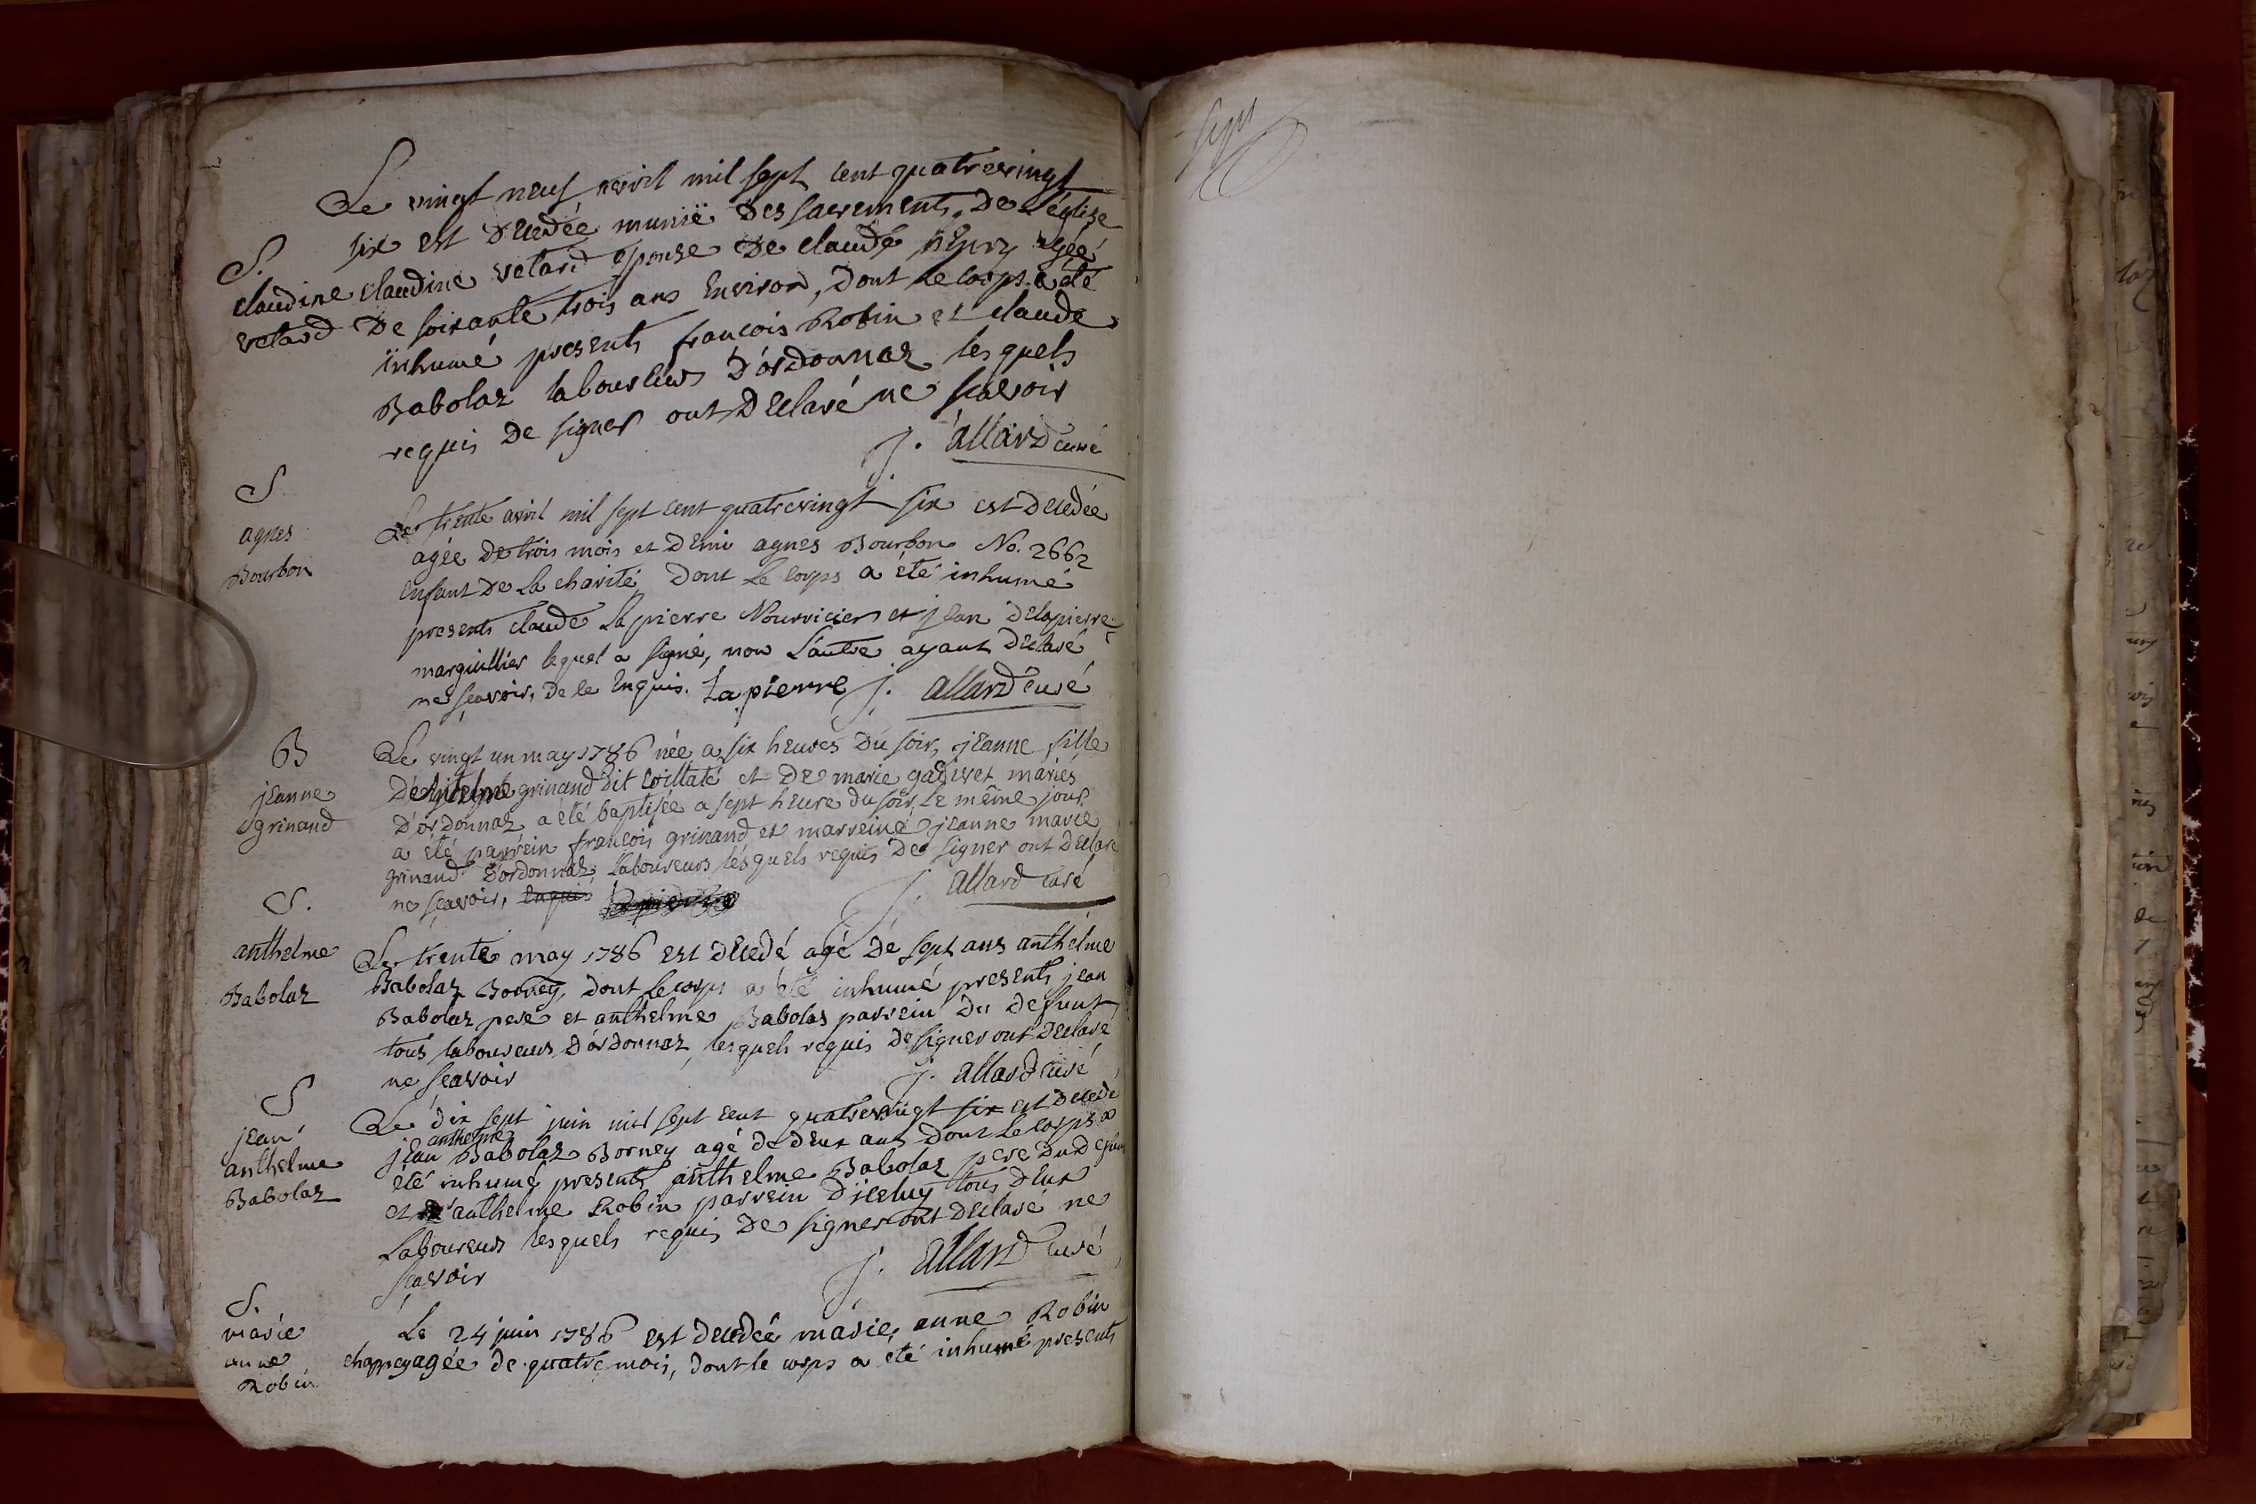 Le vingt neuf avril mil sept cent quatrevingt
S.
six est decedée munië des sacrements de L'église
claudine
claudine vetard epouse de claude agée
vetard
de soixante trois ans Environ, dont Le corps a été
inhumé presents francois Robin et claude
Babolaz laboureurs D'ordonnaz les quels
requis de signer ont declaré ne scavoir
j. allard curé
S
agnes
Bourbon
Le trente avril mil sept cent quatrevingt six est decedée
agée de trois mois et demi agnes Bourbon No. 2662
Enfant de La charité dont Le corps a été inhumé
presents claude La pierre Nourricier et jean delapierre
marguillier lequel a signé, non L'autre ayant declaré
ne scavoir, de ce Enquis. La pierre j. allard curé
B
jeanne
grinand
Le vingt un may 1786 née a six heures du soir, jeanne fille
D'Antelme grinand dit et de marie gadivet mariés
D'ordonnaz a été baptisée a sept heure du soir, Le même jour
a été parrein francois grinand et marreine jeanne marie
grinand d'ordonnaz Laboureurs lesquels requis de signer ont declaré
ne scavoir, Enquis j. allard curé
S.
anthelme
Babolaz
Le trente may 1786 est decedé agé de sept ans anthelme
Babolaz Borney, dont Le corps a été inhumé presents jean
Babolaz pere et anthelme Babolas parrein du defunt
tous laboureurs D'ordonnaz, lesquels requis de signer ont declaré
ne scavoir
j. allard curé
S
jean
anthelme
Babolaz
Le dix sept juin mil sept cent quatrevingt six est decedé
anthelme
jean Babolaz Borney agé de deux ans dont Le corps a
été inhumé presents anthelme Babolaz pere du defunt
et anthelme Robin parrein d'iceluy tous deux
Laboureurs lesquels requis de signer ont declaré ne
scavoir
j. allard curé
S.
marie
anne
Robin
Le 24 juin 1786 est decedée marie anne Robin
chappey agée de quatre mois, dont le corps a été inhumé presents